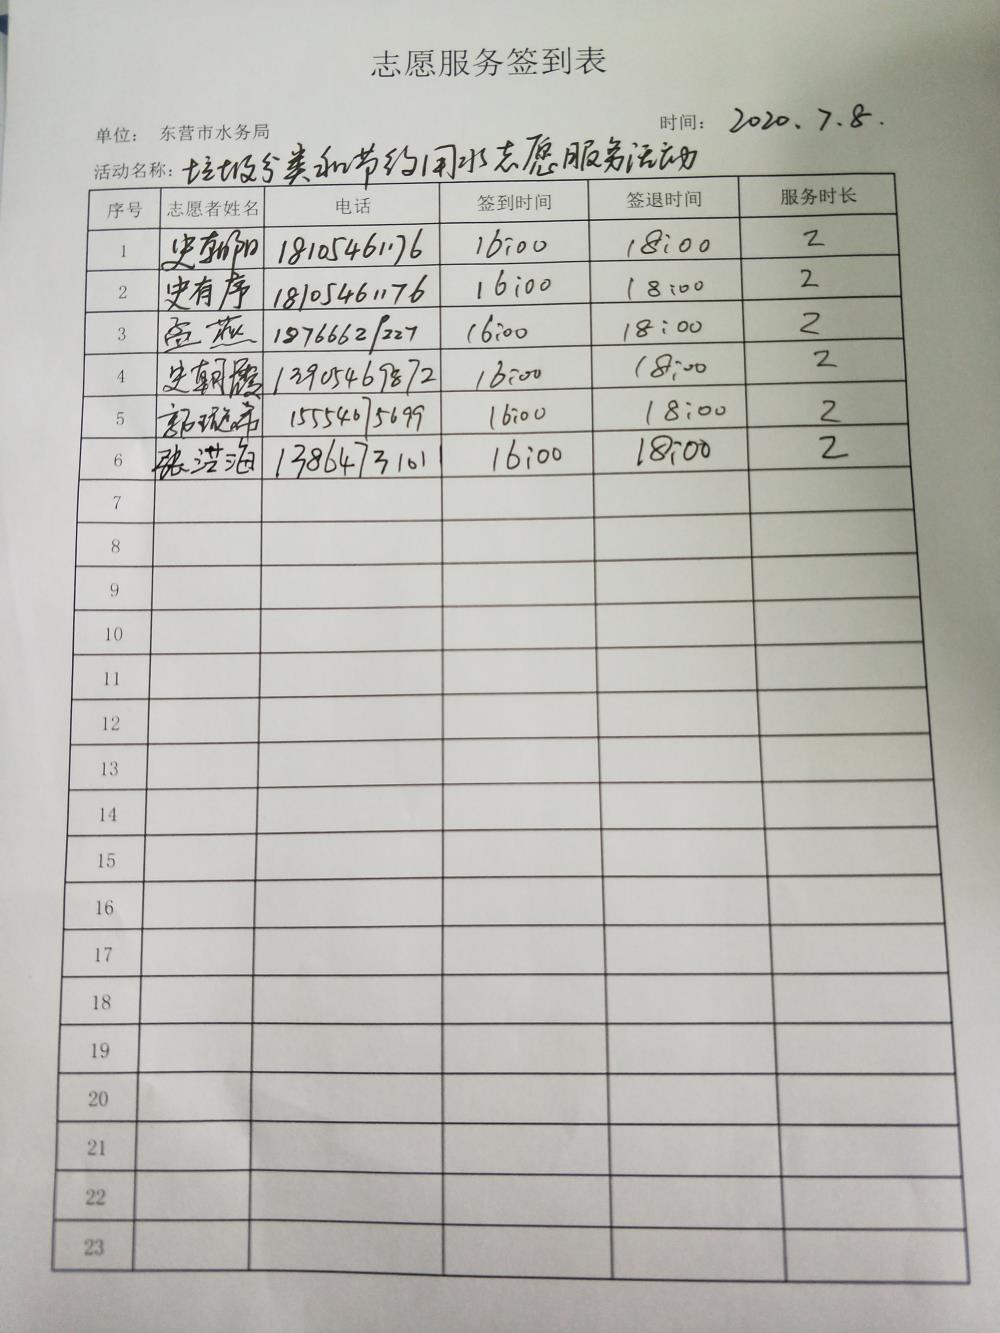 志愿服务签到表
单位： 东营市水务局 时间： 2020.7.8.
活动名称：垃圾分类和节约用水志愿服务活动
序号 志愿者姓名 电话 签到时间 签退时间 服务时长
1 史朝阳 18105461176 16:00 18:00 2
2 史有序 18105461176 16:00 18:00 2
3 孟燕 18766621227 16:00 18:00 2
4 史朝霞 13905469872 16:00 18:00 2
5 15554675699 16:00 18:00 2
6 张洪海 13864731011 16:00 18:00 2
7
8
9
10
11
12
13
14
15
16
17
18
19
20
21
22
23